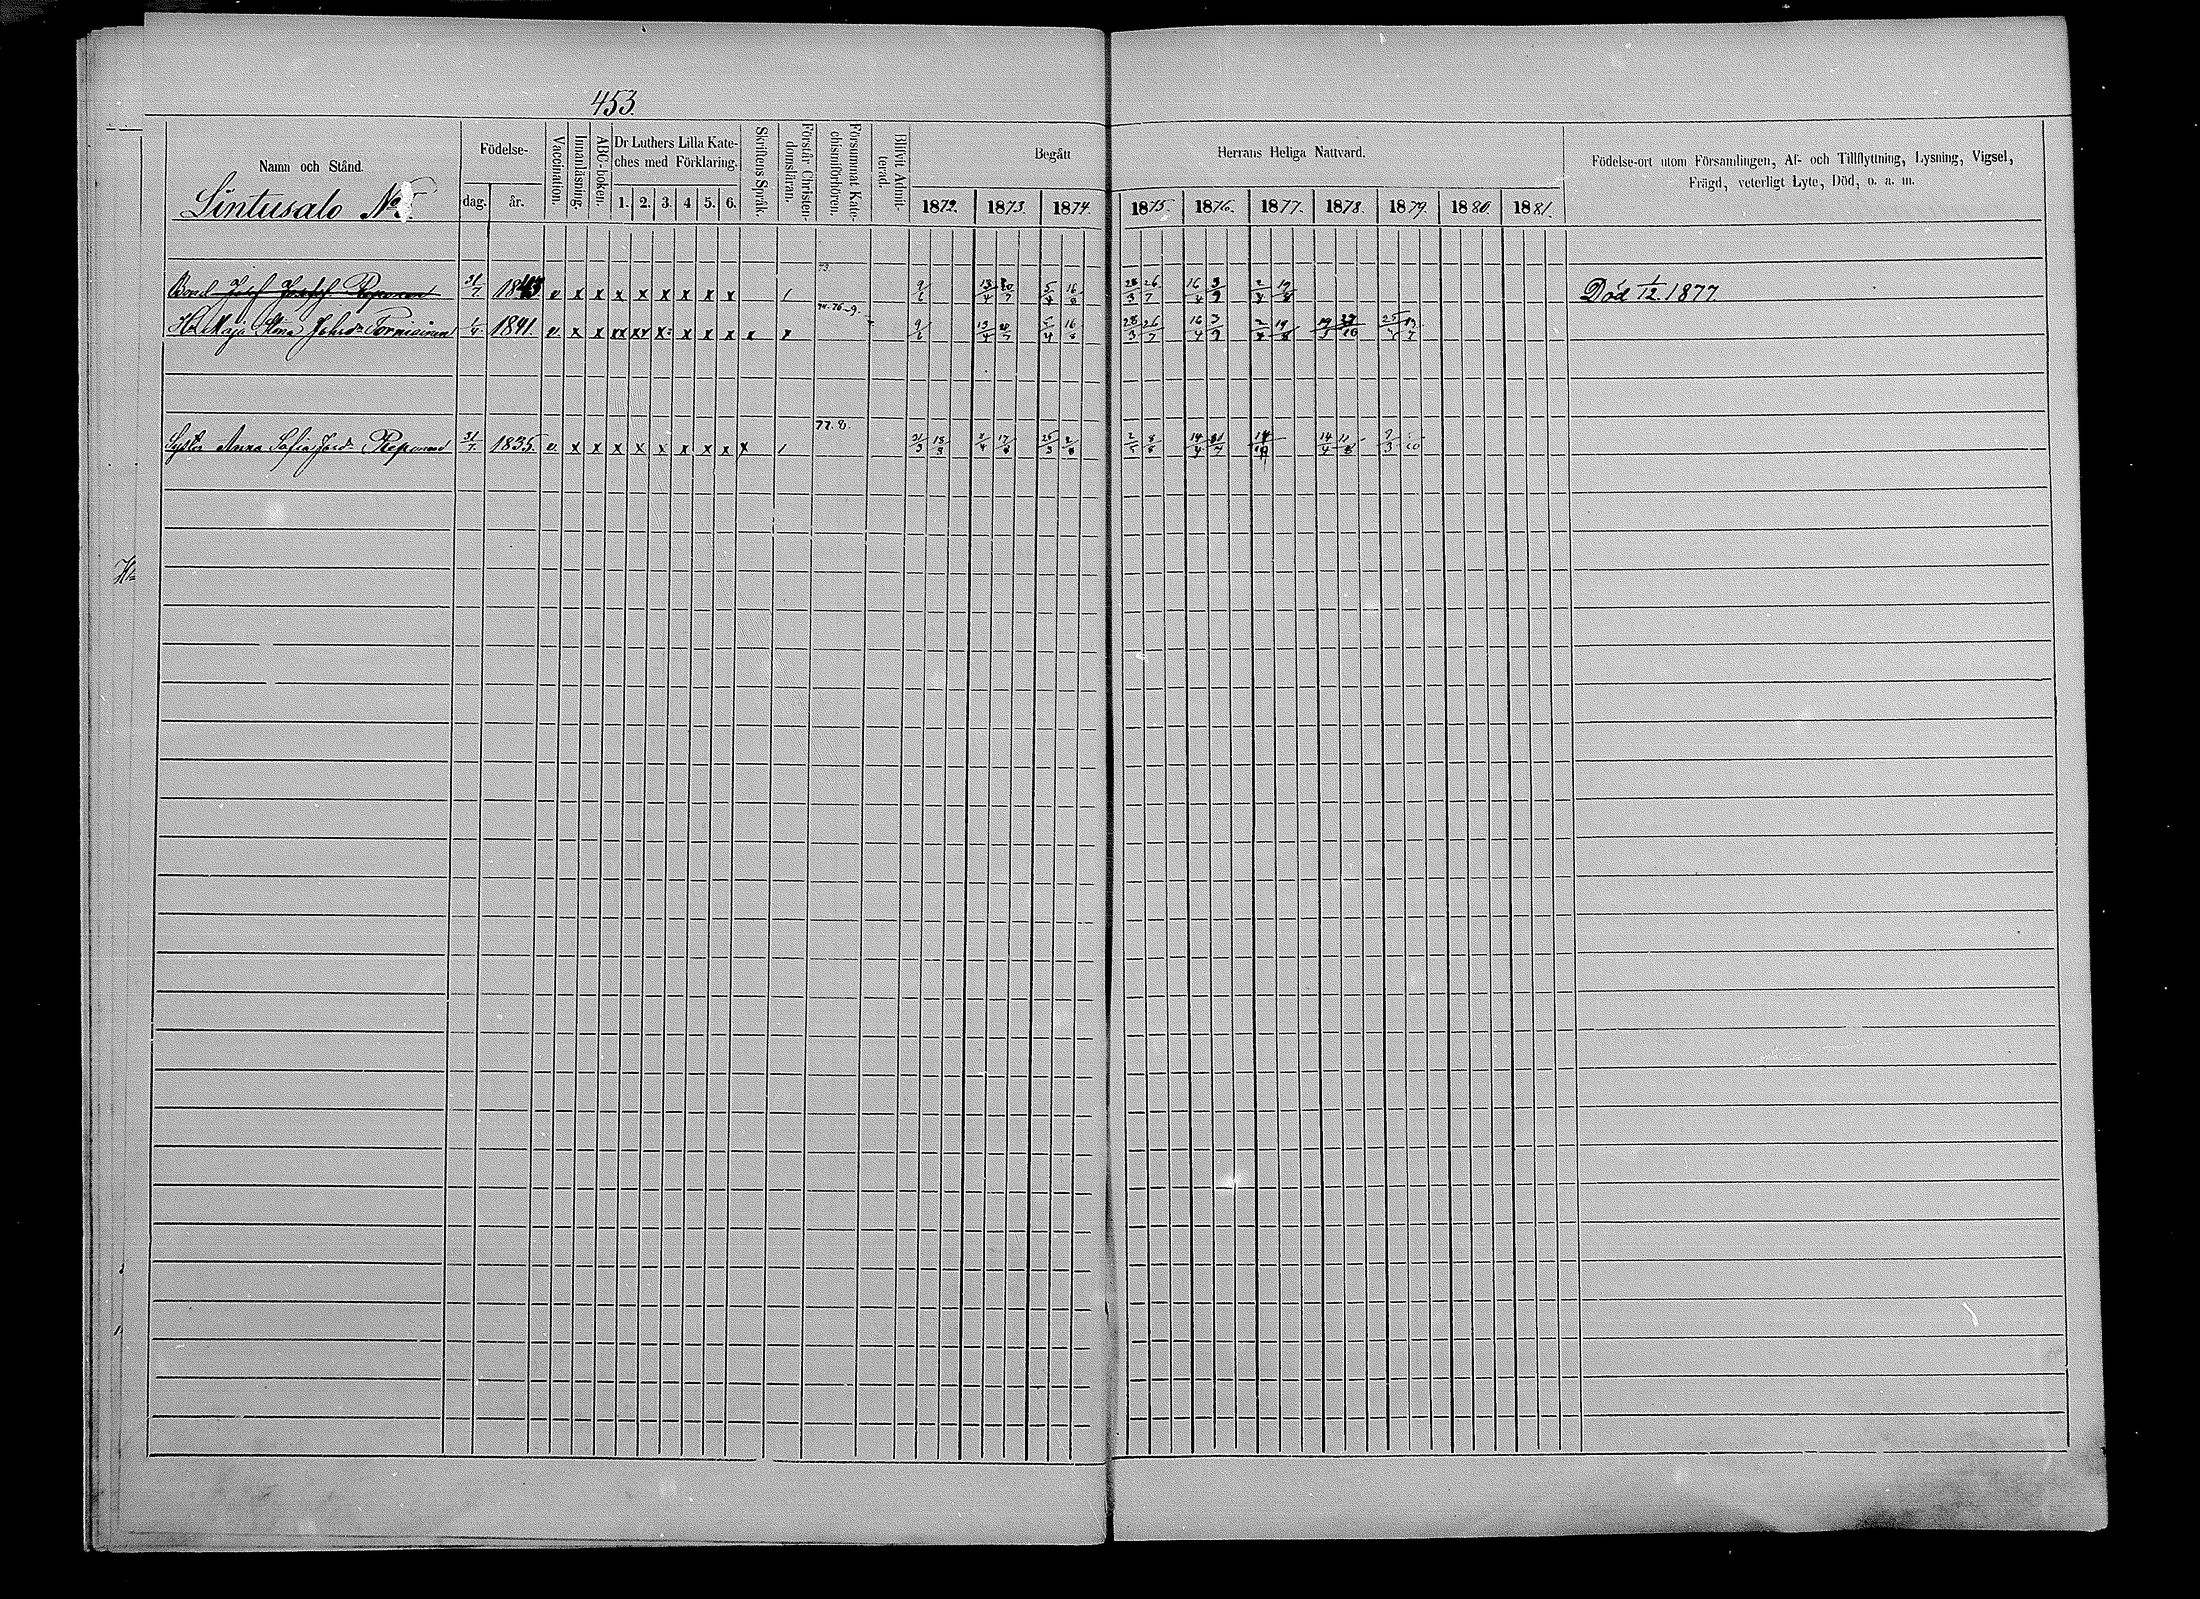 453.
Namn och Stånd.
Födelse-
dag.
år.
Vaccination.
Innanläsning.
ABC-boken.
Dr Luthers Lilla Kate-
ches med Förklaring.
1. 2. 3. 4 5. 6.
Skriftens Språk.
Förstår Christen-
domsläran.
Försummat Kate-
chismiförhören.
Blifvit Admit-
terad.
Begått Herrans Heliga Nattvard.
1872. 1873. 1874. 1875. 1876. 1877. 1878. 1879. 1880. 1881.
Födelse-ort utom Församlingen, Af- och Tillflyttning, Lysning, Vigsel,
Frägd, veterligt Lyte, Död, o. a. m.
Sintusalo No
73.
Bond Josef Reponen 31/7 1843 v x x x x x x x x / 9/6 13/4 20/7 5/4 16/8 28/3 26/7 16/4 3/9 2/4 19/8 Död 1/12. 1877.
74-76-9.
Hu Maja Stina Johsdr Tornisinen 1841. v. x x xx xx x: x x x x 9/6 13/4 20/7 5/4 16/8 28/3 26/7 16/4 3/9 2/4 19/8
77.8.
Syster Anna Sofia Reponen 31/7. 1835. v. x x x x x x x x x / 2/4 17/8 14/4 11/8